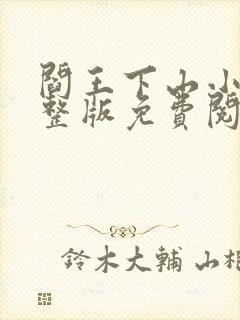 閻王下山小
整版免費閱
鈴木大輔 山相